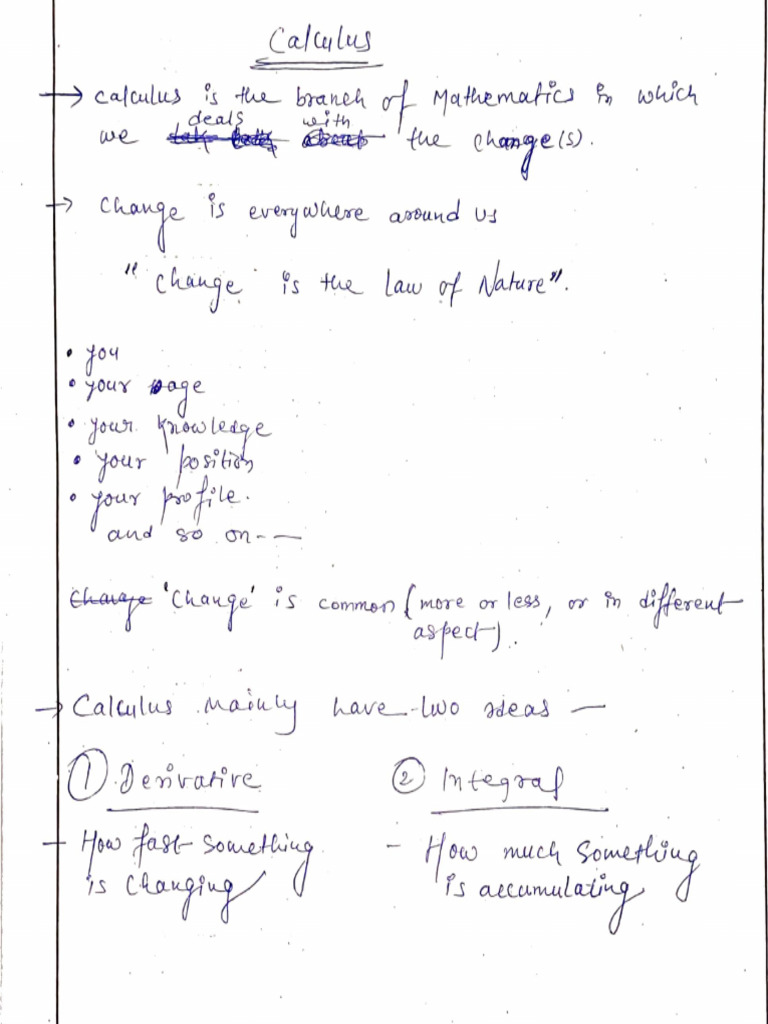 Calculus
→ Calculus is the branch of Mathematics in which
deals with
we the change(s).
→ Change is everywhere around us
"Change is the law of Nature".
• you
• your age
• your knowledge
• your position
• your profile.
and so on - - —
Change 'Change' is common (more or less, or in different
aspect).
→ Calculus mainly have two ideas —
① Derivative ② Integral
– How fast something – How much something
is changing is accumulating